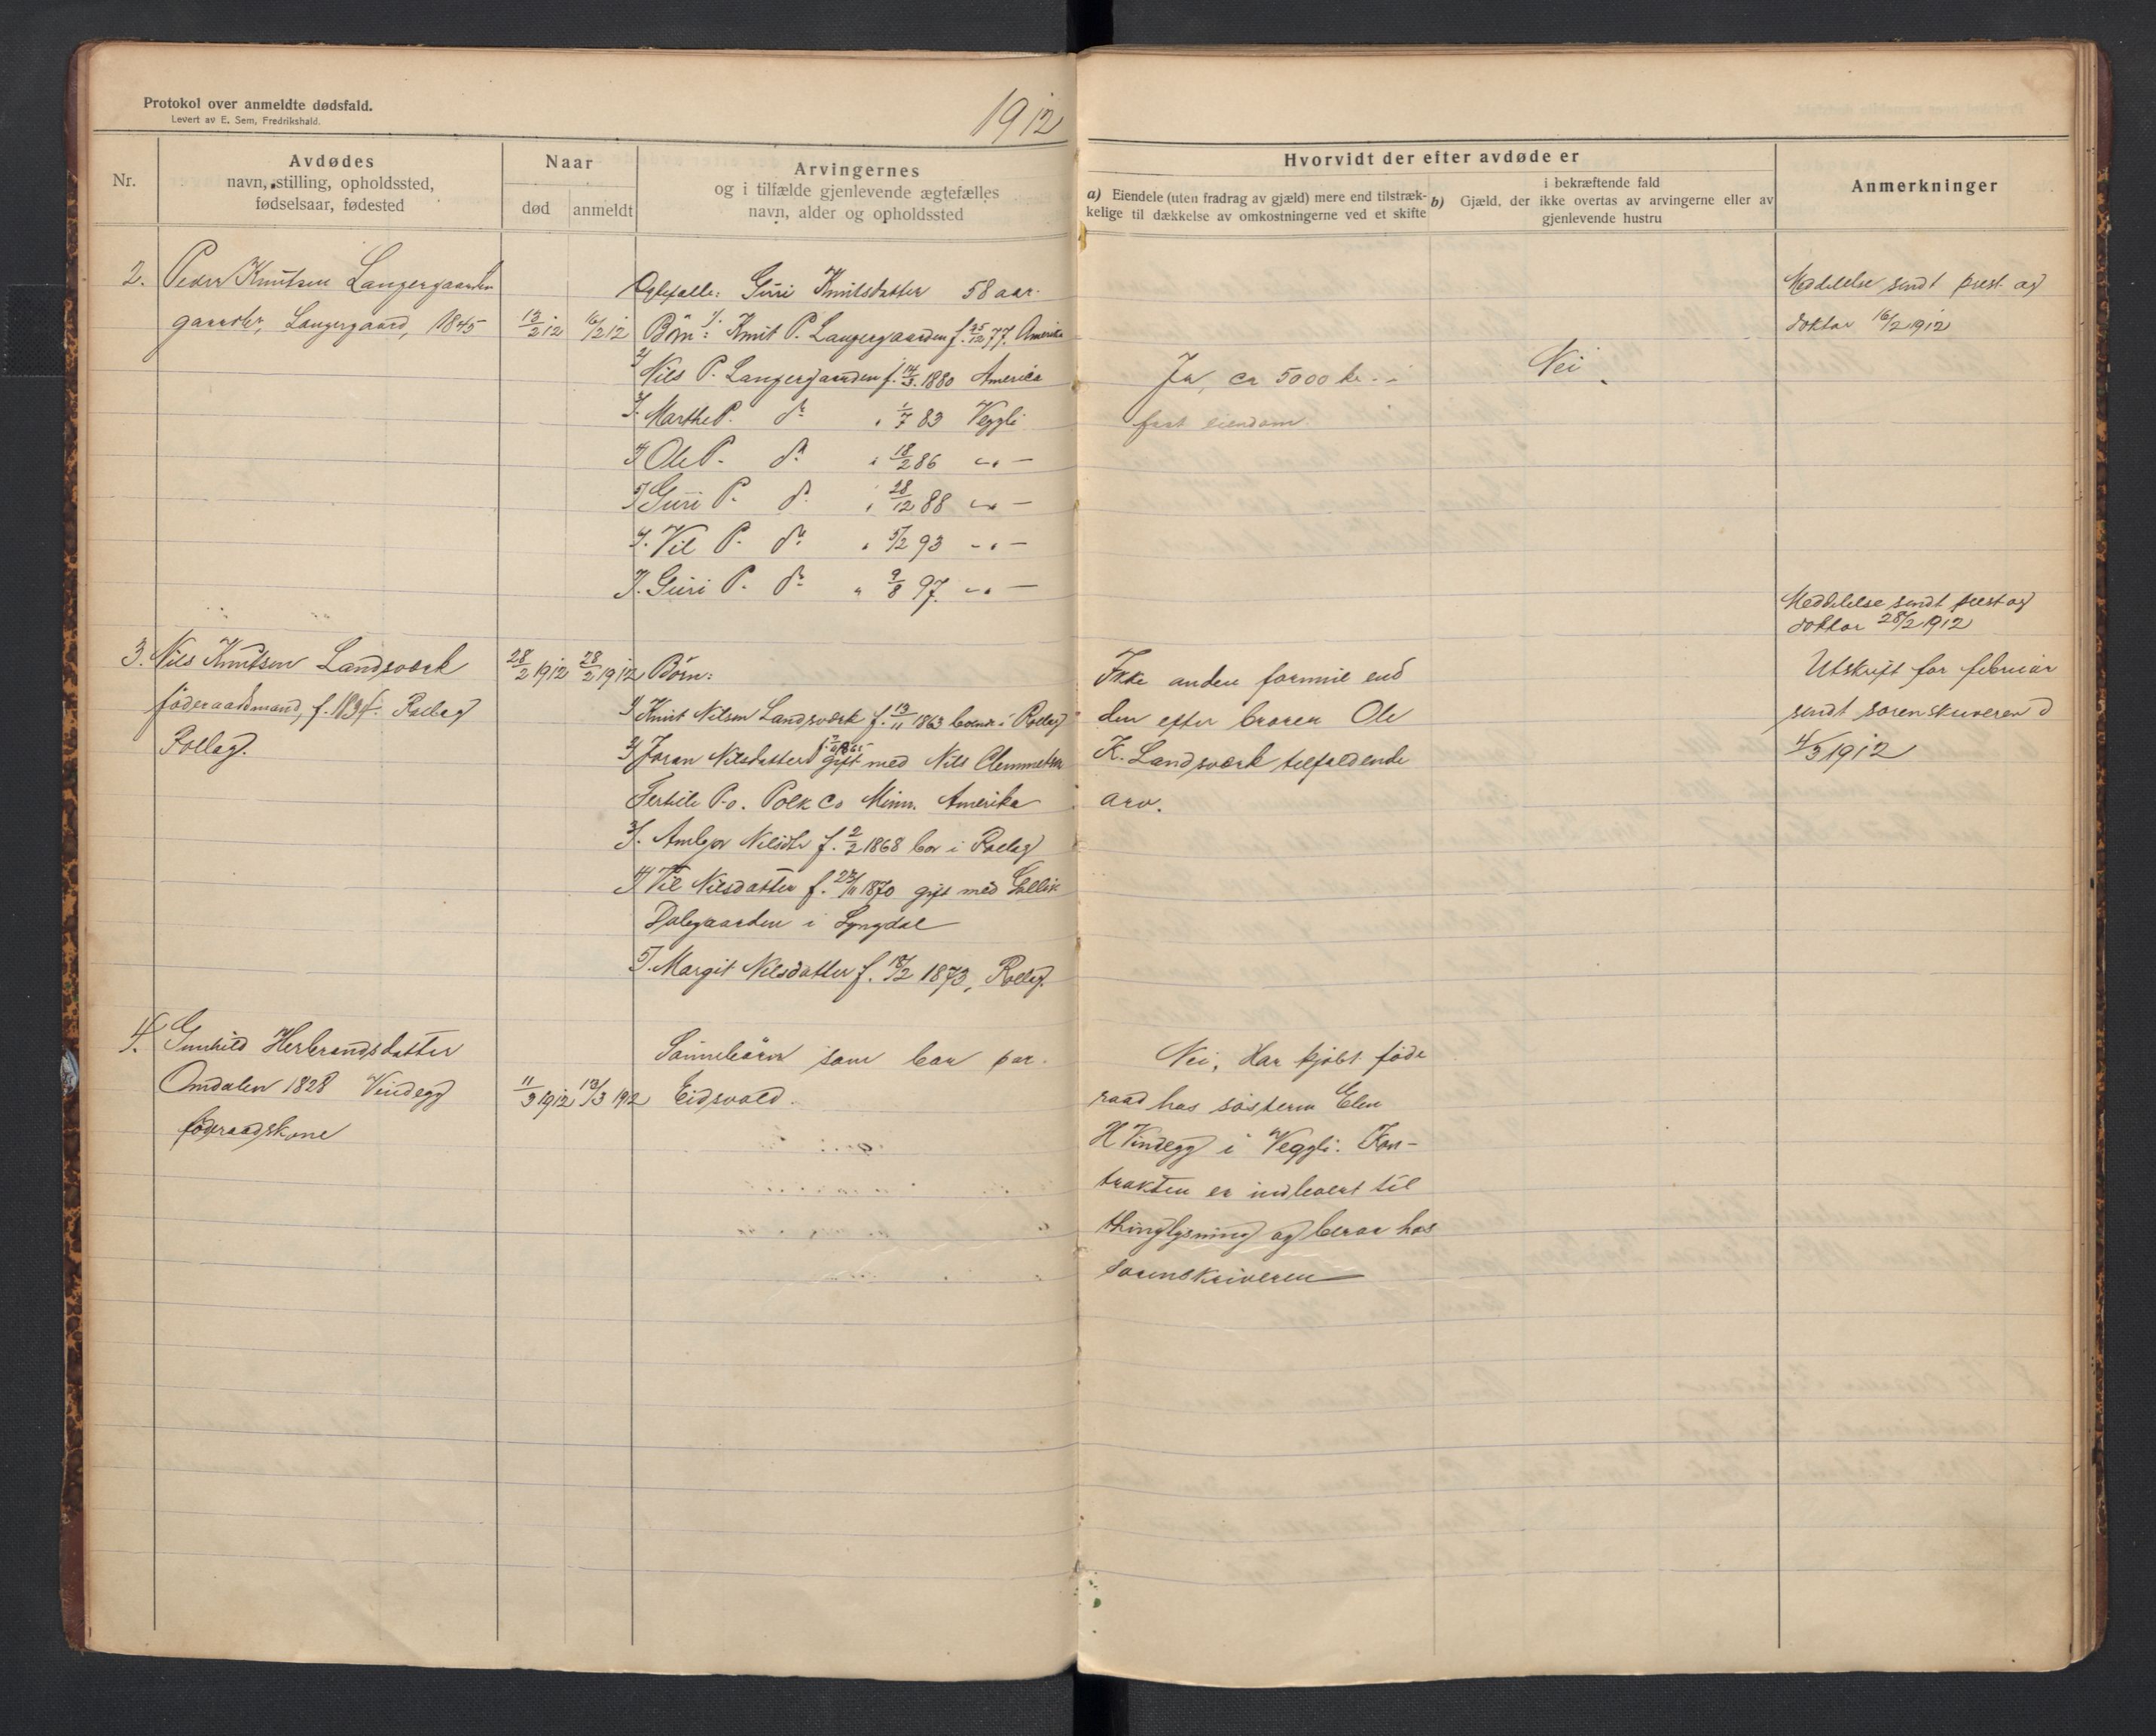 Protokol over anmeldte dødsfald.
Levert av E. Sem, Fredrikshald.
1912
Nr.
Avdødes
navn, stilling, opholdssted,
fødselsaar, fødested
Naar
død
anmeldt
Arvingernes
og i tilfælde gjenlevende ægtefælles
navn, alder og opholdssted
Hvorvidt der efter avdøde er
a) Eiendele (uten fradrag av gjæld) mere end tilstræk-
kelige til dækkelse av omkostningerne ved et skifte
i bekræftende fald
b) Gjæld, der ikke overtas av arvingerne eller av
gjenlevende hustru
Anmerkninger
2. Peder Knutsen Langergaarden
gaardbr, Langergaard, 1845
13/2 12
16/2 12
Egtefælle: Guri Knutsdatter 58 aar.
Börn: 1. Knut P. Langergaarden f. 25/12 77. Amerika
2) Nils P. Langergaarden f. 14/3 1880 America
3. Marthe P. do " 1/7 83 Veggli
4) Ole P. do " 18/2 86 -"-
5) Guri P. do " 28/12 88 -"-
6. Vil P. do " 5/2 93 -"-
7. Guri P. do " 9/8 97. -"-
Ja, ca 5000 kr.
fast eiendom
Nei
Meddelelse sendt prest og
doktor 16/2 1912
3. Nils Knutsen Landsværk
föderaadsmand, f. 1834. Rollag
Rollag.
28/2 1912
28/2 1912
Börn:
1) Knut Nilsen Landsværk f. 13/11 1863 boende i Rollag
2) Joran Nilsdatter gift med Nils Clemmetsen
Fertile P.o. Polk Co Minn. Amerika
3. Ambjør Nilsdtr f. 2/2 1868 bor i Rollag
4) Vil Nilsdatter f. 23/11 1870 gift med Gullik
Dalegaarden i Lyngdal
5). Margit Nilsdatter f. 18/2 1873, Rollag.
Ikke anden formue end
den efter broren Ole
K. Landsværk tilfaldende
arv.
Meddelelse sendt prest og
doktor 28/2 1912
Utskrift for februar
sendt sorenskriveren d
4/3 1912
4. Gunhild Herbrandsdatter
Omdalen 1828 Vindegg
föderaadskone
11/3 1912
13/3 1912
som bor paa
Eidsvold.
Nei, Har kjöbt föde
raad hos söstern Elen
H Vindegg i Veggli. Kon-
trakten er indlevert til
thinglysning og beror hos
sorenskriveren